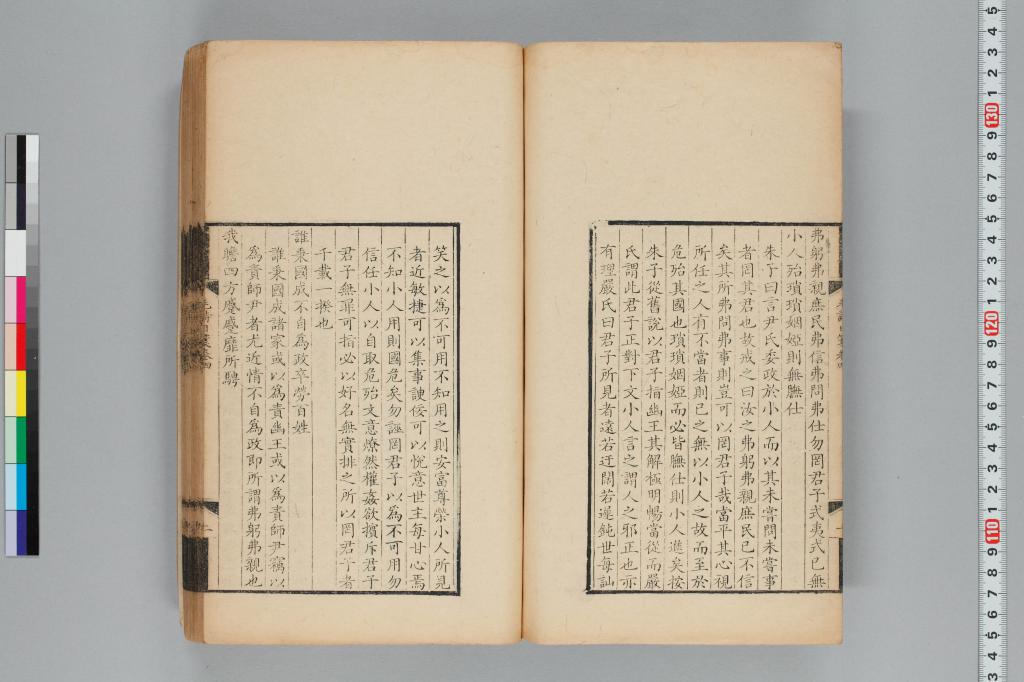 弗躬弗親庶民弗信弗問弗仕勿罔君子式夷式已無
小人殆瑣瑣姻婭則無膴仕
朱子曰言尹氏委政於小人而以其未嘗問未嘗事
者罔其君也故戒之曰汝之弗躬弗親庶民已不信
矣其所弗問弗事則豈可以罔君子哉當平其心視
所任之人有不當者則已之無以小人之故而至於
危殆其國也瑣瑣姻婭而必皆膴仕則小人進矣按
朱子從舊說以君子指幽王其解極明暢當從而嚴
氏謂此君子正對下文小人言之謂人之邪正也亦
有理嚴氏曰君子所見者遠若迂闊若遲鈍世每訕
笑之以為不可用不知用之則安富尊榮小人所見
者近敏捷可以集事諛佞可以悅意世主每甘心焉
不知小人用則國危矣勿誣罔君子以為不可用勿
信任小人以自取危殆文意燎然權姦欲擯斥君子
君子無罪可指必以好名無實排之所以罔君子者
千載一揆也
誰秉國成不自為政卒勞百姓
誰秉國成諸家或以為責幽王或以為責師尹竊以
為責師尹者尤近情不自為政即所謂弗躬弗親也
我瞻四方蹙蹙靡所騁